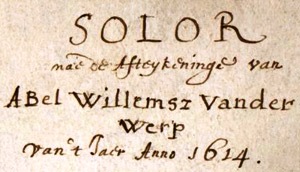 SOLOR
nae de Afteykeninge van
ABel Willemsz Vander
Werp
van't Jaer Anno 1614.